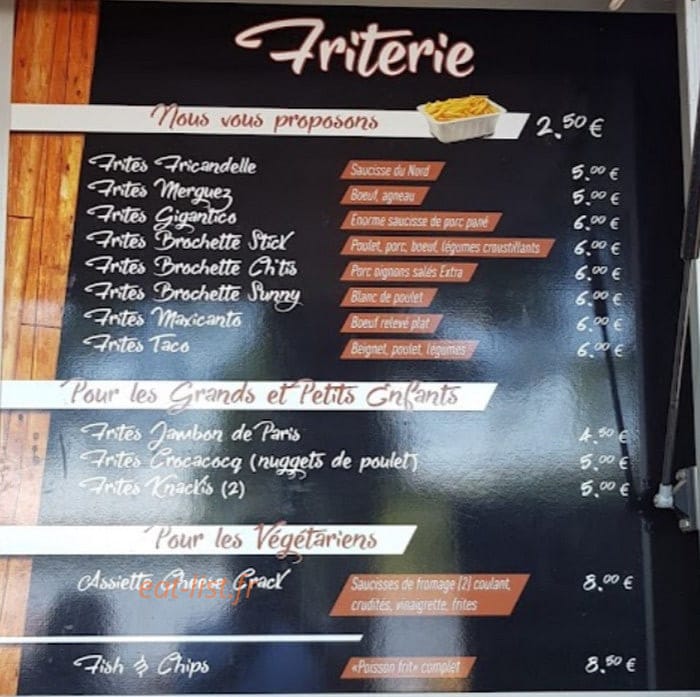 Friterie
Nous vous proposons 2.50 €
Frites Fricandelle Saucisse du Nord 5.00 €
Frites Merguez Boeuf, agneau 5.00 €
Frites Gigantico Enorme saucisse de porc pané 6.00 €
Frites Brochette Stick Poulet, porc, boeuf, légumes croustillants 6.00 €
Frites Brochette Ch'tis Porc oignons salés Extra 6.00 €
Frites Brochette Sunny Blanc de poulet 6.00 €
Frites Maxicanto Boeuf relevé plat 6.00 €
Frites Taco Beignet, poulet, légumes 6.00 €
Pour les Grands et Petits Enfants
Frites Jambon de Paris 4.50 €
Frites Crocacocq (nuggets de poulet) 5.00 €
Frites Knackis (2) 5.00 €
Pour les Végétariens
Assiette Cheese Crack Saucisses de fromage (2) coulant, 8.00 €
crudités, vinaigrette, frites
eat-list.fr
Fish & Chips «Poisson frit» complet 8.50 €